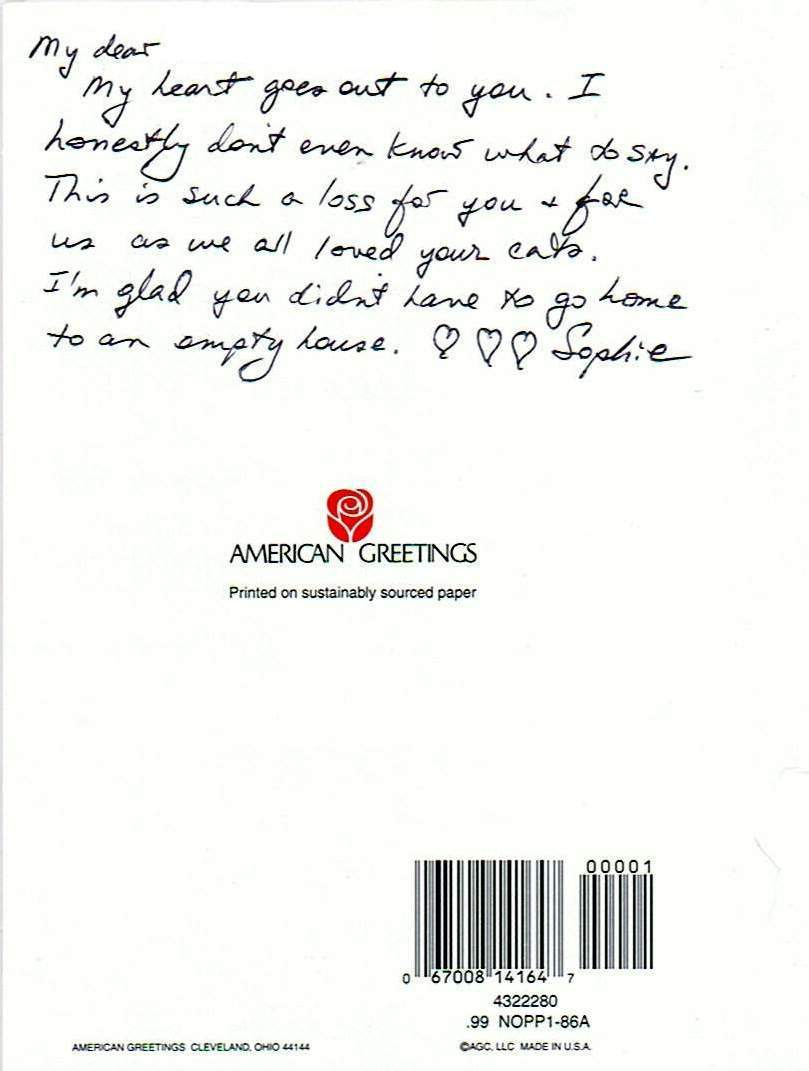 My dear
My heart goes out to you. I
honestly don't even know what to say.
This is such a loss for you + for
us as we all loved your cats.
I'm glad you didn't have to go home
to an empty house. ♡ ♡ ♡ Sophie
AMERICAN GREETINGS
Printed on sustainably sourced paper
00001
0 67008 14164 7
4322280
.99 NOPP1-86A
AMERICAN GREETINGS CLEVELAND, OHIO 44144 ©AGC, LLC MADE IN U.S.A.